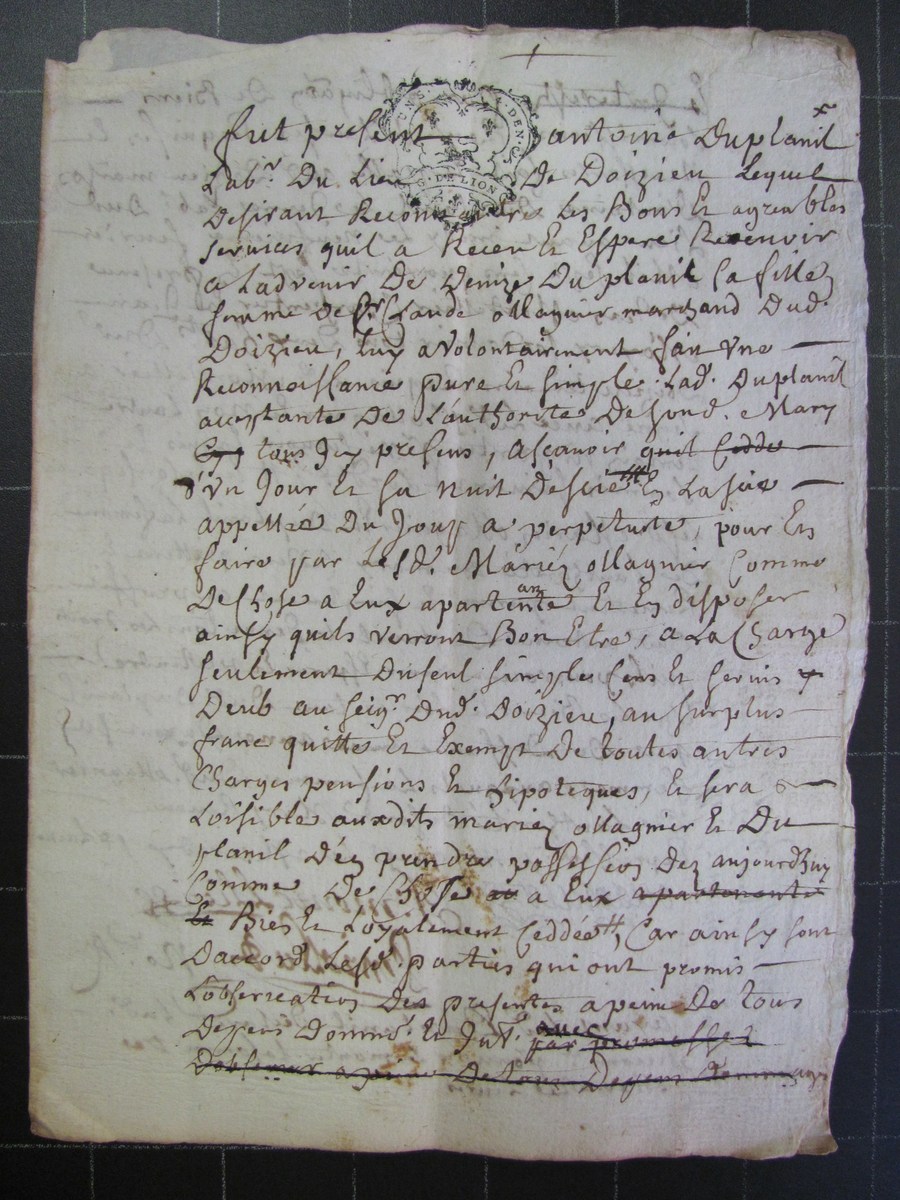 fut present antoine Duplanil
Lab.r Du Lieu De Doizieu Lequel
Desirant Reconnaitre Les Bons Et agreables
services quil a Receu Et Espere Recevoir
a Ladvenir De Denize Duplanil sa fille
femme De Sr Claude ollagnier marchand Dud.
Doizieu, luy a volontairement fait une
Reconnoissance pure Et simple Lad. Duplanil
acceptante De Lauthorité De sond. Mary
tous Icy presens, ascavoir quil cedde
d'un Jour Et sa nuit De scie En La scie
appellée Du Jouf a perpetuité, pour En
faire par Lesd. Mariez ollagnier Comme
De Chose a Eux apartenante Et En disposer
ainsy quils verront Bon Etre, a La Charge
seulement Du seul simple Cens Et servis
Deub au seig.r Dud. Doizieu, au surplus
franc quitte Et Exempt De toutes autres
Charges pensions Et hipoteques, Et sera
Loisible auxdits mariez ollagnier Et Du
planil D'en prendre possession Dez aujourdhuy
Comme De Chose a Eux apartenante
Et Bien Et Loyalement Ceddée, Car ainsy sont
Daccord Lesd. parties qui ont promis
Lobservation Des presentes a peine De tous
Depens Domme. Et Int. avec par promesses
Dobserver a peine De tous Depens Dommages
G. DE LION